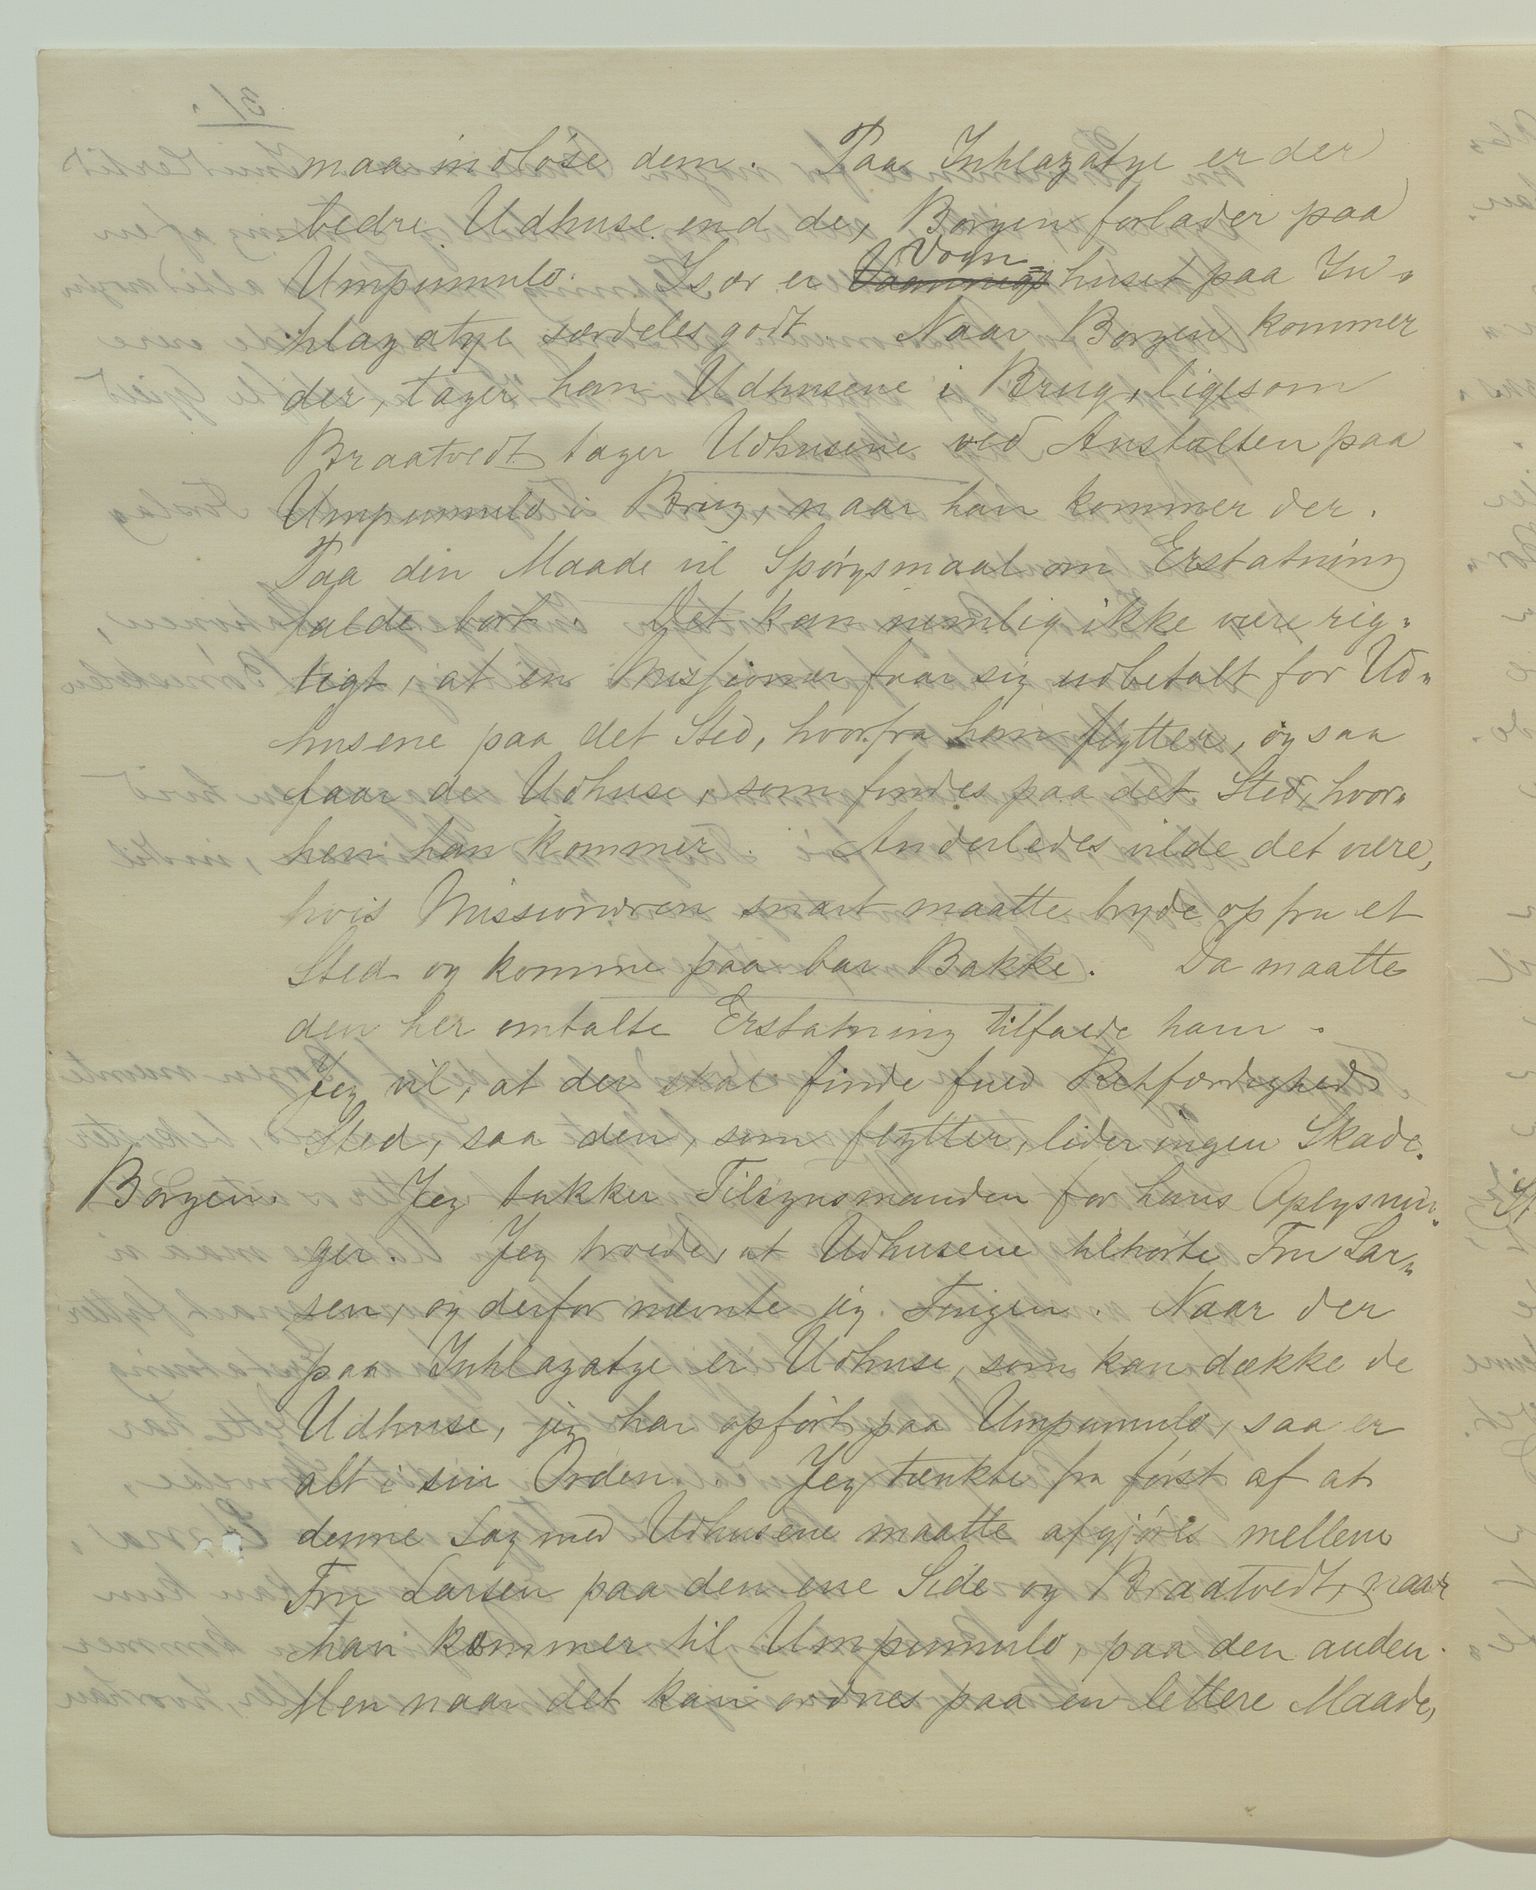 maa indløse dem. Paa Inhlazatye er der
bedre Udhuse end de, Borgen forlader paa
Umpumulo. Især er Vogn-huset paa In-
hlazatye særdeles godt. Naar Borgen kommer
der, tager han Udhusene i Brug, ligesom
Braatvedt tager Udhusene ved Anstalten paa
Umpumulo i Brug, naar han kommer der.
Paa den Maade vil Spørgsmaal om Erstatning
falde bort. Det kan nemlig ikke være rig-
tigt, at en Missionær faar sig udbetalt for Ud-
husene paa det Sted, hvorfra han flytter, og saa
faar de Udhuse, som findes paa det Sted, hvor-
hen han kommer. Anderledes vilde det være,
hvis Missionæren snart maatte bryde op fra et
Sted og komme paa bar Bakke. Da maatte
den her omtalte Erstatning tilfalde ham.
Jeg vil, at der skal finde fuld Retfærdighed
Sted, saa den, som flytter, lider ingen Skade.
Borgen. Jeg takker Tilsynsmanden for hans Oplysnin-
ger. Jeg troede, at Udhusene tilhørte Fru Lar-
sen, og derfor nævnte jeg Tingen. Naar der
paa Inhlazatye er Udhuse, som kan dække de
Udhuse, jeg har opført paa Umpumulo, saa er
alt i sin Orden. Jeg tænkte fra først af at
denne Sag med Udhusene maatte afgjøres mellem
Fru Larsen paa den ene Side og Braatvedt, naar
han kommer til Umpumulo, paa den anden.
Men naar det kan ordnes paa en lettere Maade,